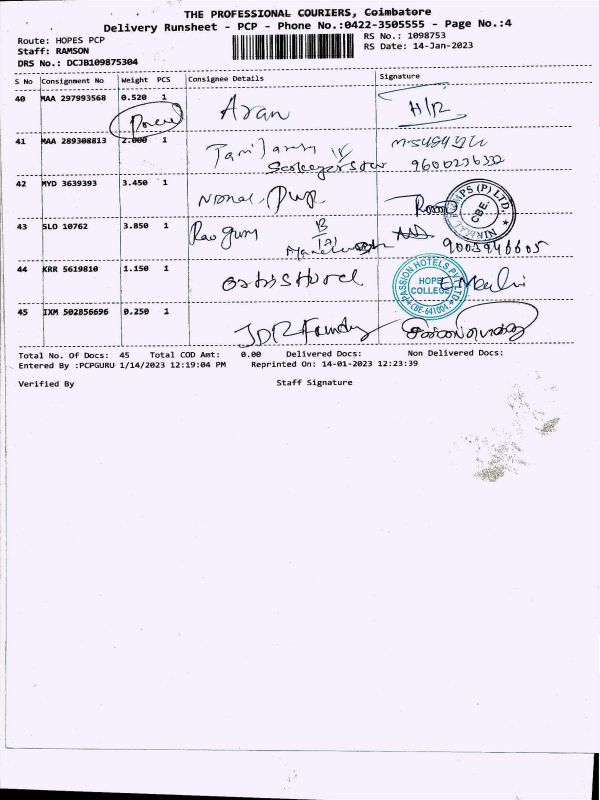 THE PROFESSIONAL COURIERS, Coimbatore
Delivery Runsheet - PCP - Phone No.:0422-3505555 - Page No.:4
Route: HOPES PCP
RS No.: 1098753
Staff: RAMSON
RS Date: 14-Jan-2023
DRS No.: DCJB109875304
S No Consignment No Weight PCS Consignee Details Signature
40 MAA 297993568 0.520 1 Aran H/R
41 MAA 289308813 2.000 1
9600236332
42 MYD 3639393 3.450 1
NIRMAL PUMPS (P) LTD. CBE.
43 SLO 10762 3.850 1
44 KRR 5619810 1.150 1
PASSION HOTELS PVT LTD HOPE COLLEGE CBE-641004
45 IXM 502856696 0.250 1 JDR Foundry
Total No. Of Docs: 45 Total COD Amt: 0.00 Delivered Docs: Non Delivered Docs:
Entered By :PCPGURU 1/14/2023 12:19:04 PM Reprinted On: 14-01-2023 12:23:39
Verified By Staff Signature